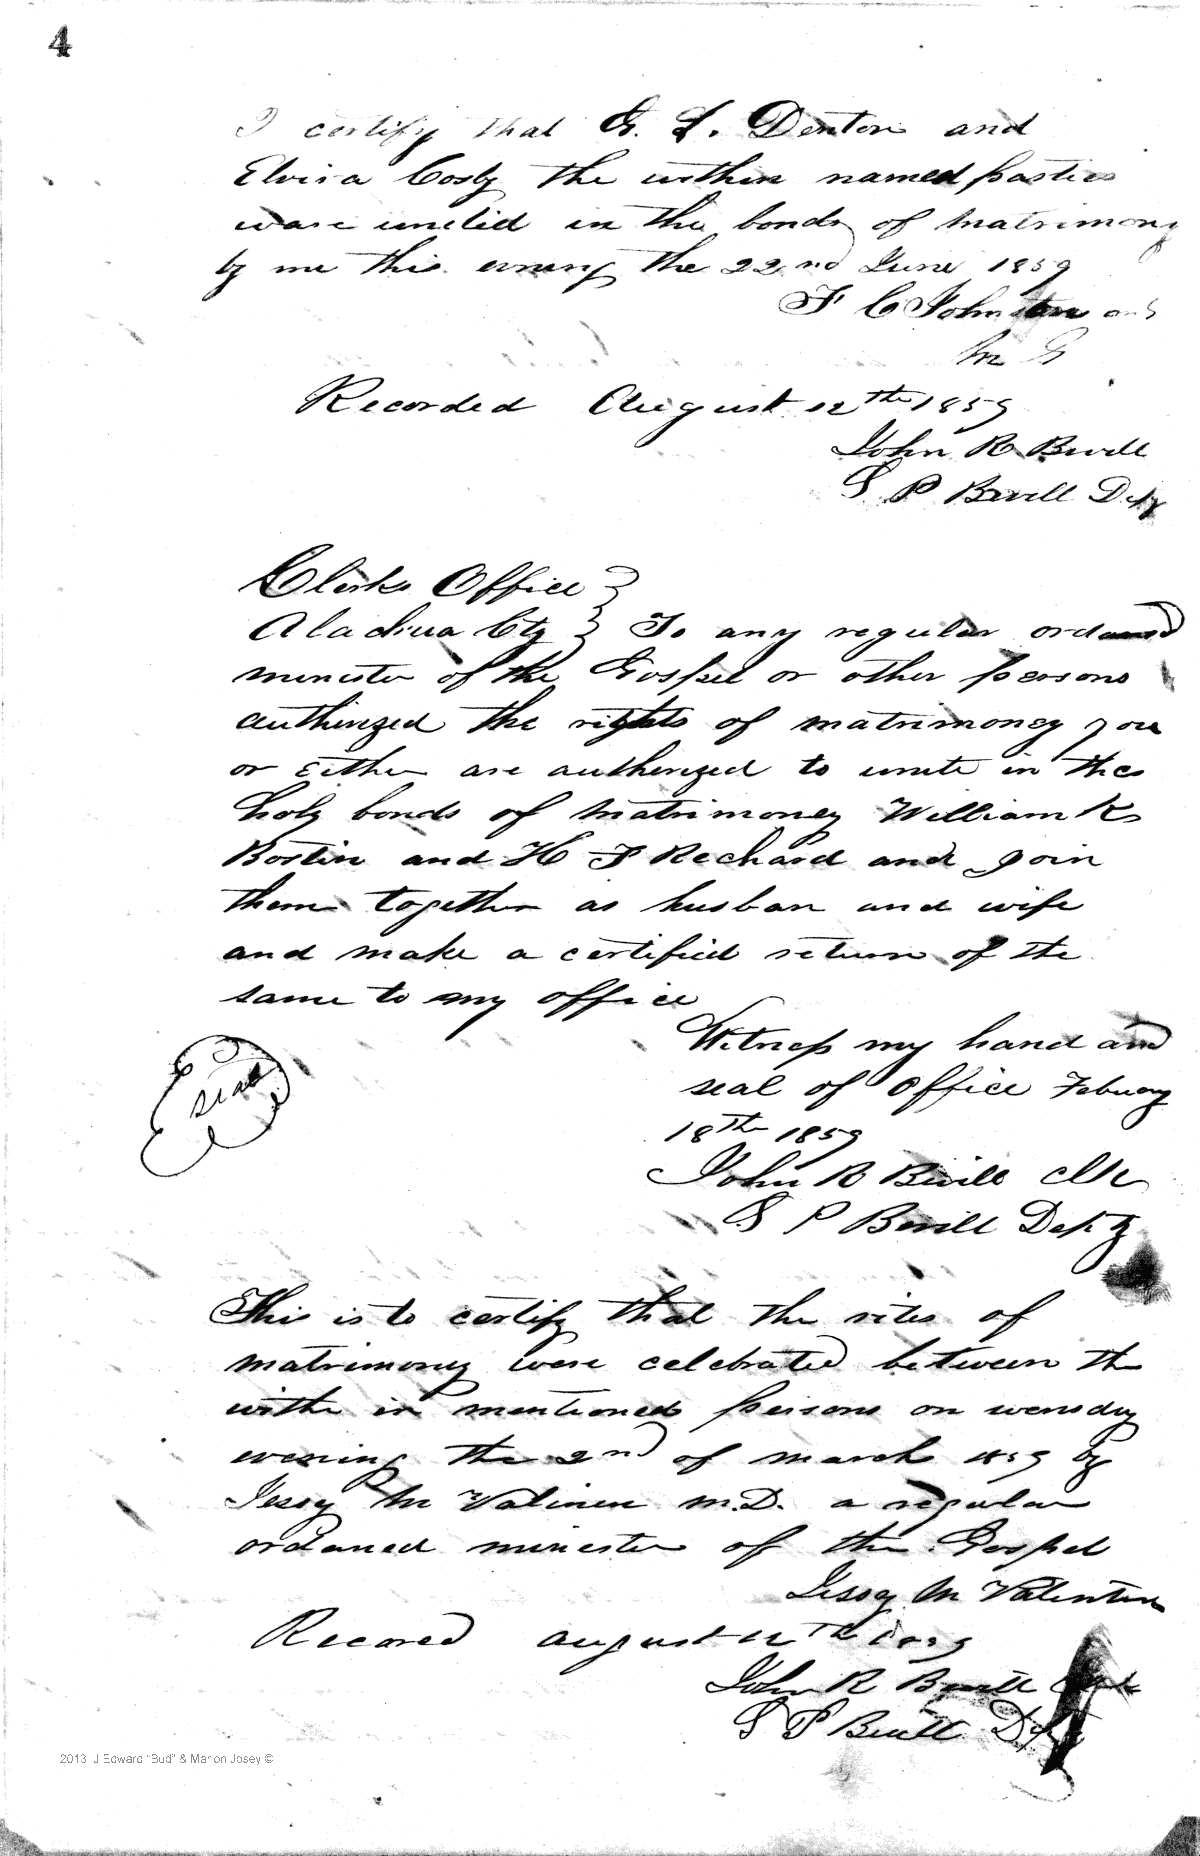 4
I certify that G. L. Denton and
Elvira Cosby the within named parties
ware unetid in the bonds of matrimony
by me this evning the 22nd June 1859
F C Johnston
M G
Recorded August 12th 1859
John R Bevill
S P Bevill Depty
Clerks Office
Alachua Cty To any regular ordaned
minester of the Gospel or other persons
authorized the rights of matrimoney you
or Either are authorized to unite in the
holy bonds of matrimoney William K
Bostin and H F Rechard and join
them together as husban and wife
and make a certified return of the
same to my office
Witness my hand and
seal of Office Febuary
18th 1859
seal
John R Bevill Clk
S P Bevill Depty
This is to certify that the rites of
matrimoney were celebrated between th
with in mentioned persons on wensday
evening the 2nd of march 1859 by
Jessy M Valinen M.D. a regular
ordaned minester of the Gospel
Jessy M Valentin
Recored august 12th 1859
John R Bevill Clk
S P Bevill Depty
2013 J Edward "Bud" & Marion Josey ©